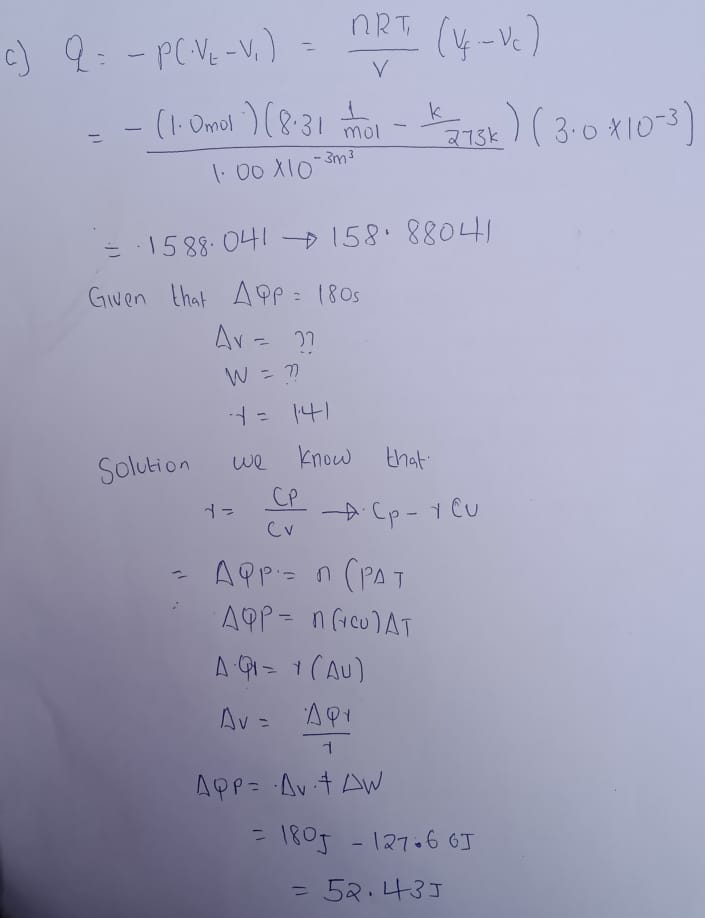 c) Q = - P(V_t - V_1) = nRT_1 / V (V_f - V_c)
= - (1.0mol)(8.31 1/mol - k/273k)(3.0 x10^-3) / 1.00 x10^-3m^3
= .1588.041 → 158.88041
Given that ΔQP = 180s
Δv = ??
W = ??
γ = 1.41
Solution we know that.
γ = Cp/Cv → Cp - γ Cv
= ΔQP = n CPΔT
ΔQP = n(γCv)ΔT
ΔQ1 = γ(ΔU)
Δv = ΔQγ/γ
ΔQP = Δv + ΔW
= 180J - 127.66J
= 52.43J